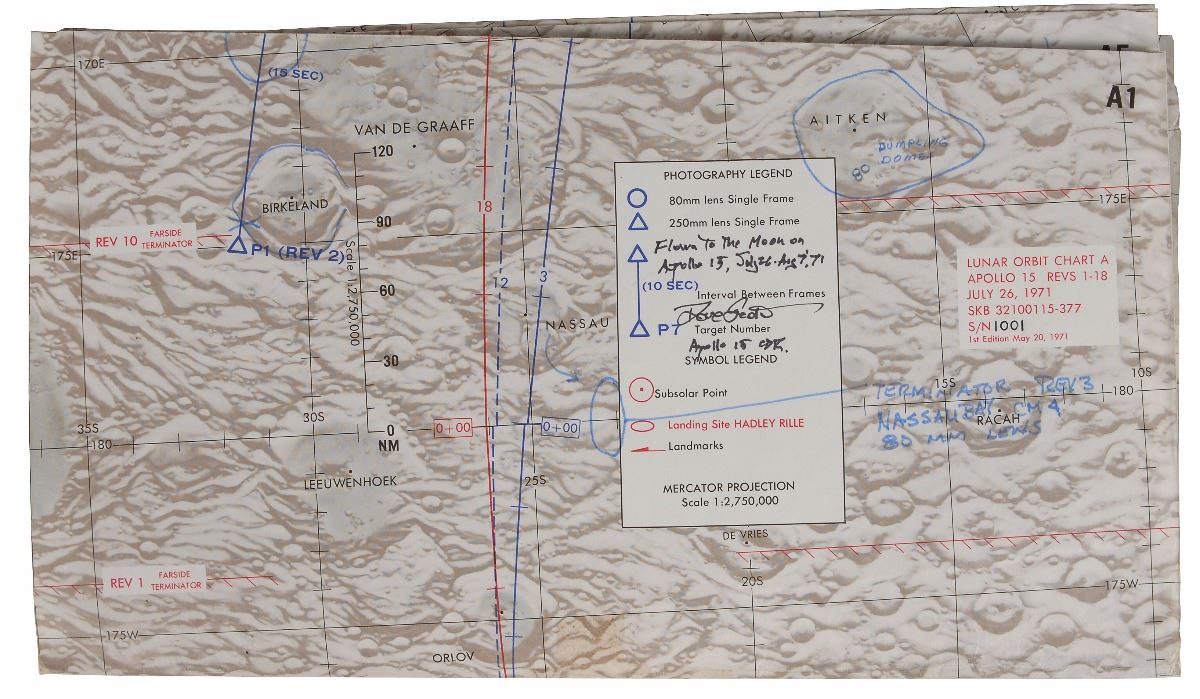 170E
(15 SEC)
VAN DE GRAAFF
120
BIRKELAND
90
REV 10 FARSIDE TERMINATOR
175E
P1 (REV 2)
Scale 1:2,750,000
60
30
0
NM
18
12
3
NASSAU
30S
35S
180
LEEUWENHOEK
0+00
0+00
25S
REV 1 FARSIDE TERMINATOR
175W
ORLOV
A1
AITKEN
DUMPLING
DOMES
80
PHOTOGRAPHY LEGEND
80mm lens Single Frame
250mm lens Single Frame
Flown To The Moon on
Apollo 15, July 26-Aug 7, '71
(10 SEC)
Interval Between Frames
Dave Scott
P7 Target Number
Apollo 15 CDR.
SYMBOL LEGEND
Subsolar Point
Landing Site HADLEY RILLE
Landmarks
MERCATOR PROJECTION
Scale 1:2,750,000
175E
LUNAR ORBIT CHART A
APOLLO 15 REVS 1-18
JULY 26, 1971
SKB 32100115-377
S/N 1001
1st Edition May 20, 1971
10S
15S
180
TERMINATOR REV 3
NASSAU BAY CM 4
80 MM LENS
RACAH
DE VRIES
20S
175W